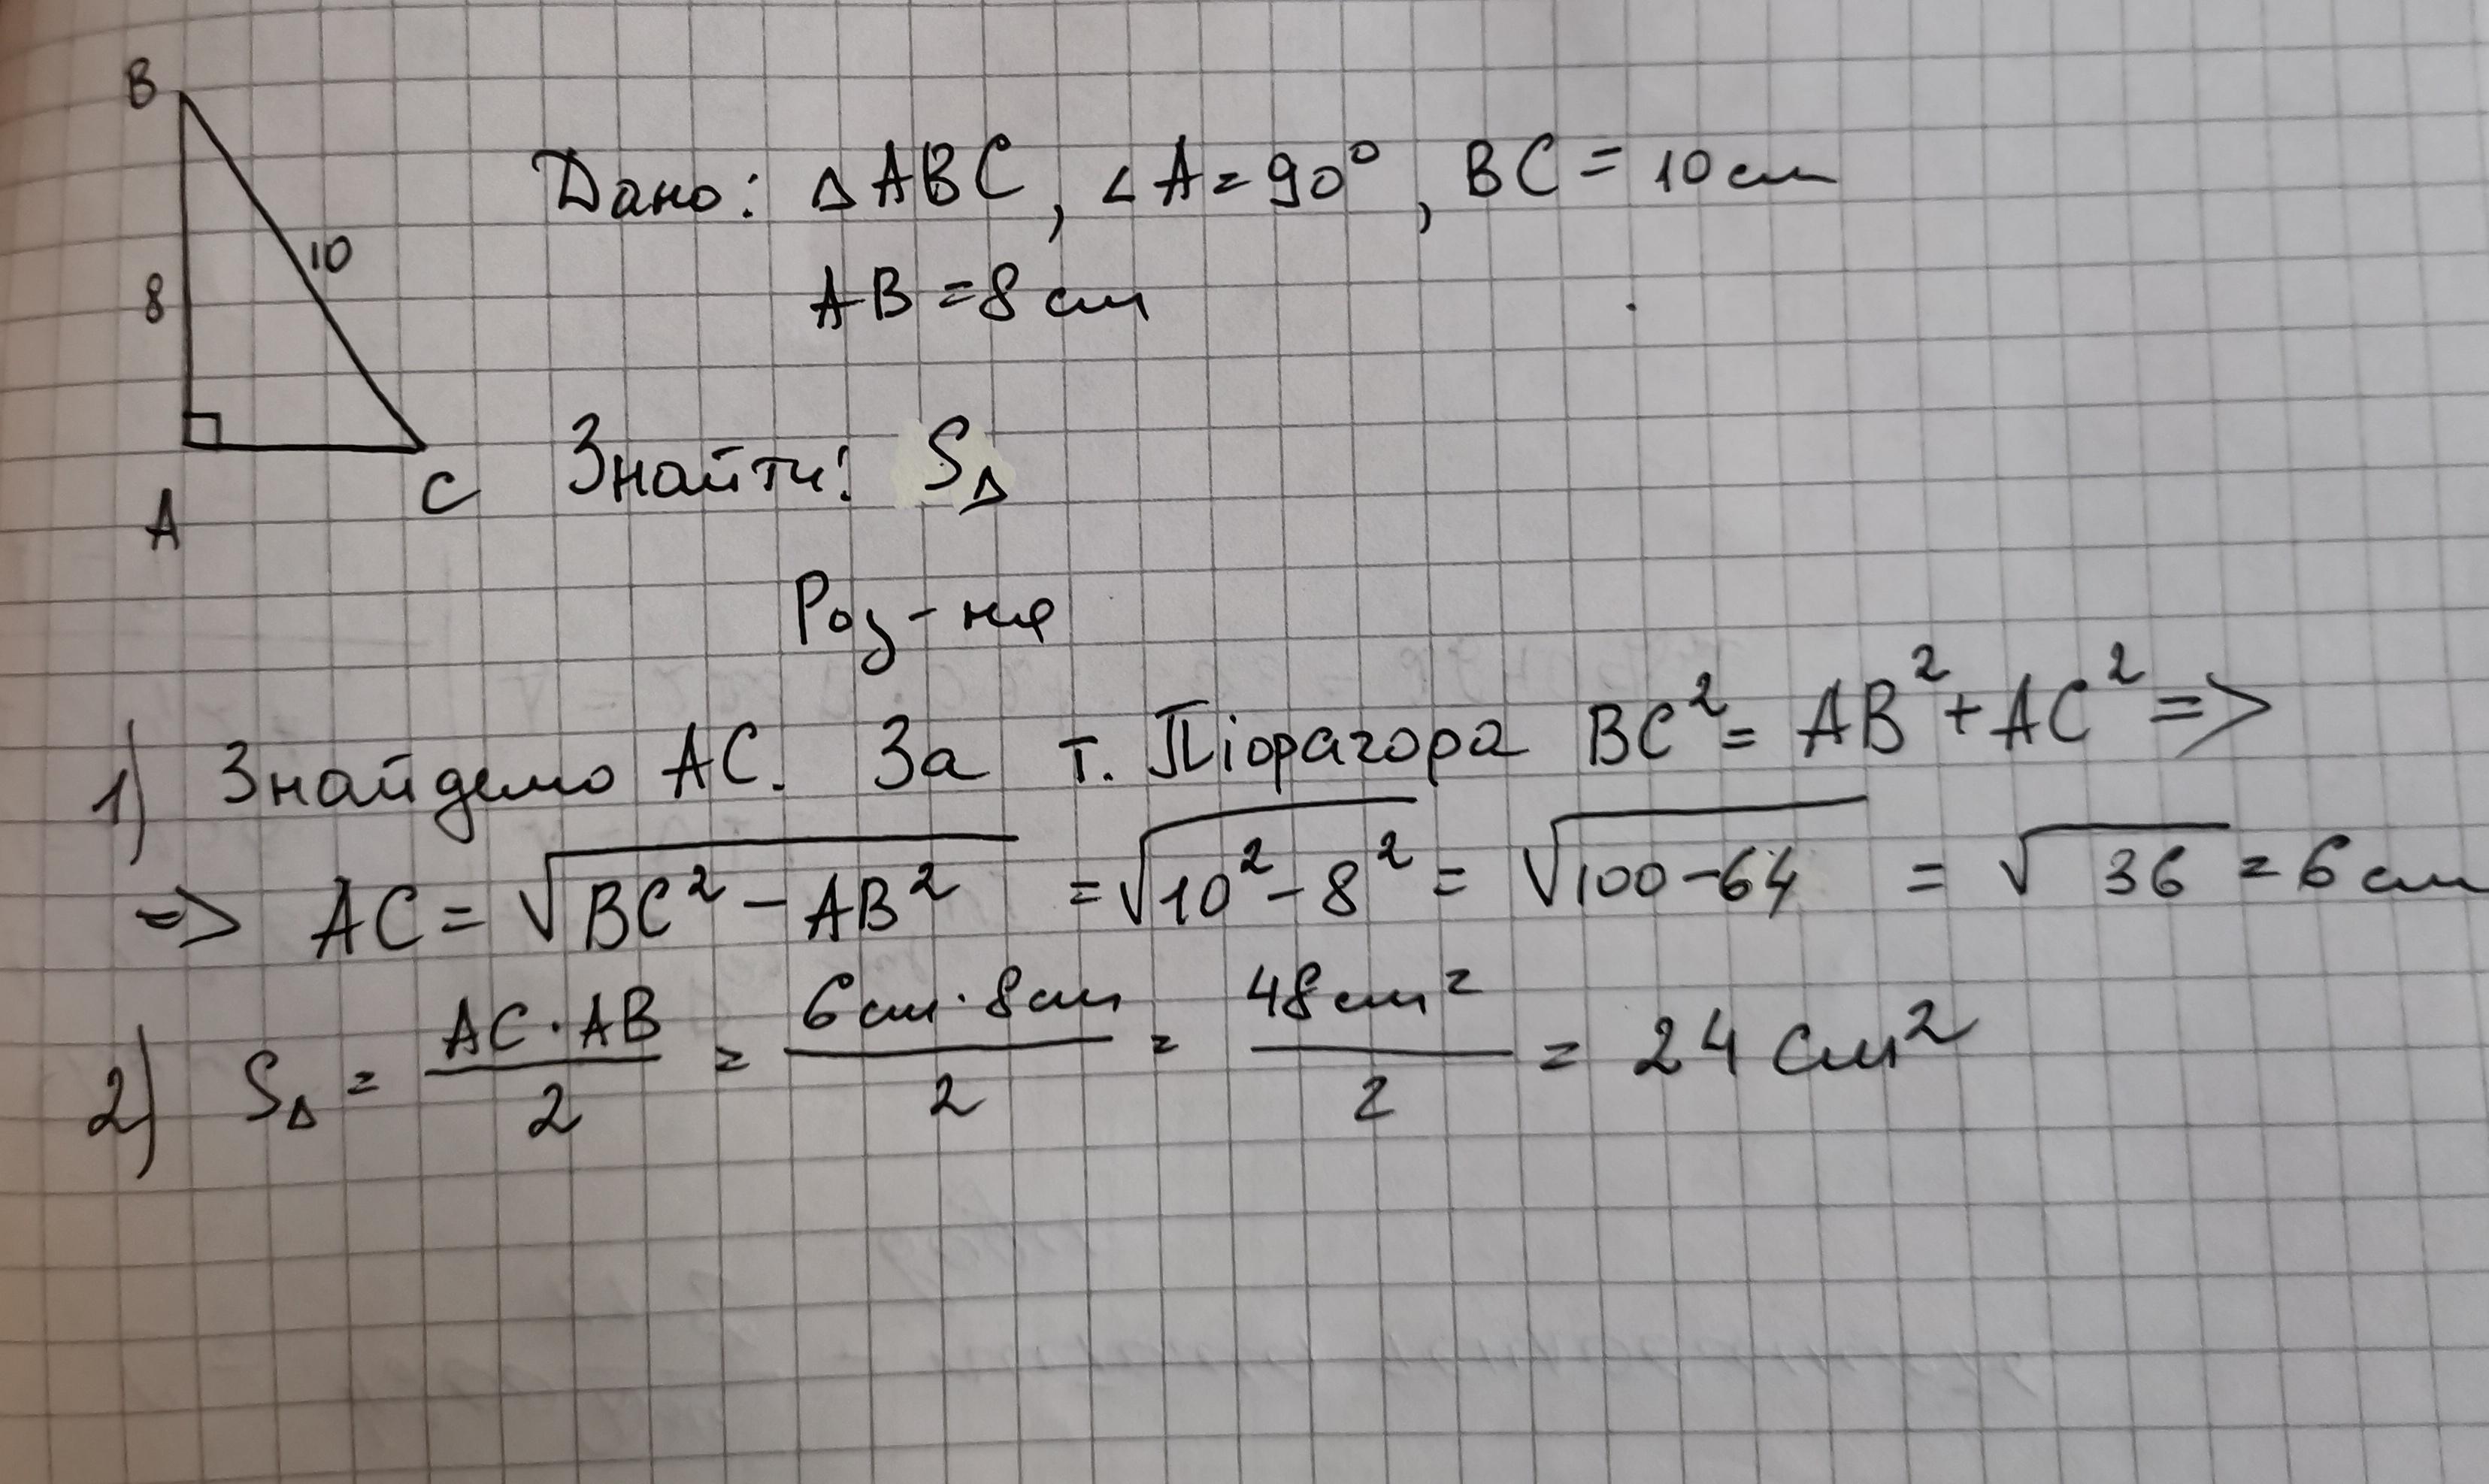 B
Дано: ∆ABC, ∠A=90°, BC=10см
10
8
AB=8см
Знайти: S∆
A
C
Роз-ня
1) Знайдемо AC. За т. Піфагора BC²=AB²+AC² =>
=> AC=√(BC²-AB²) =√(10²-8²)= √(100-64) = √36 =6см
2) S∆ = AC·AB/2 = 6см·8см/2 = 48см²/2 = 24 см²